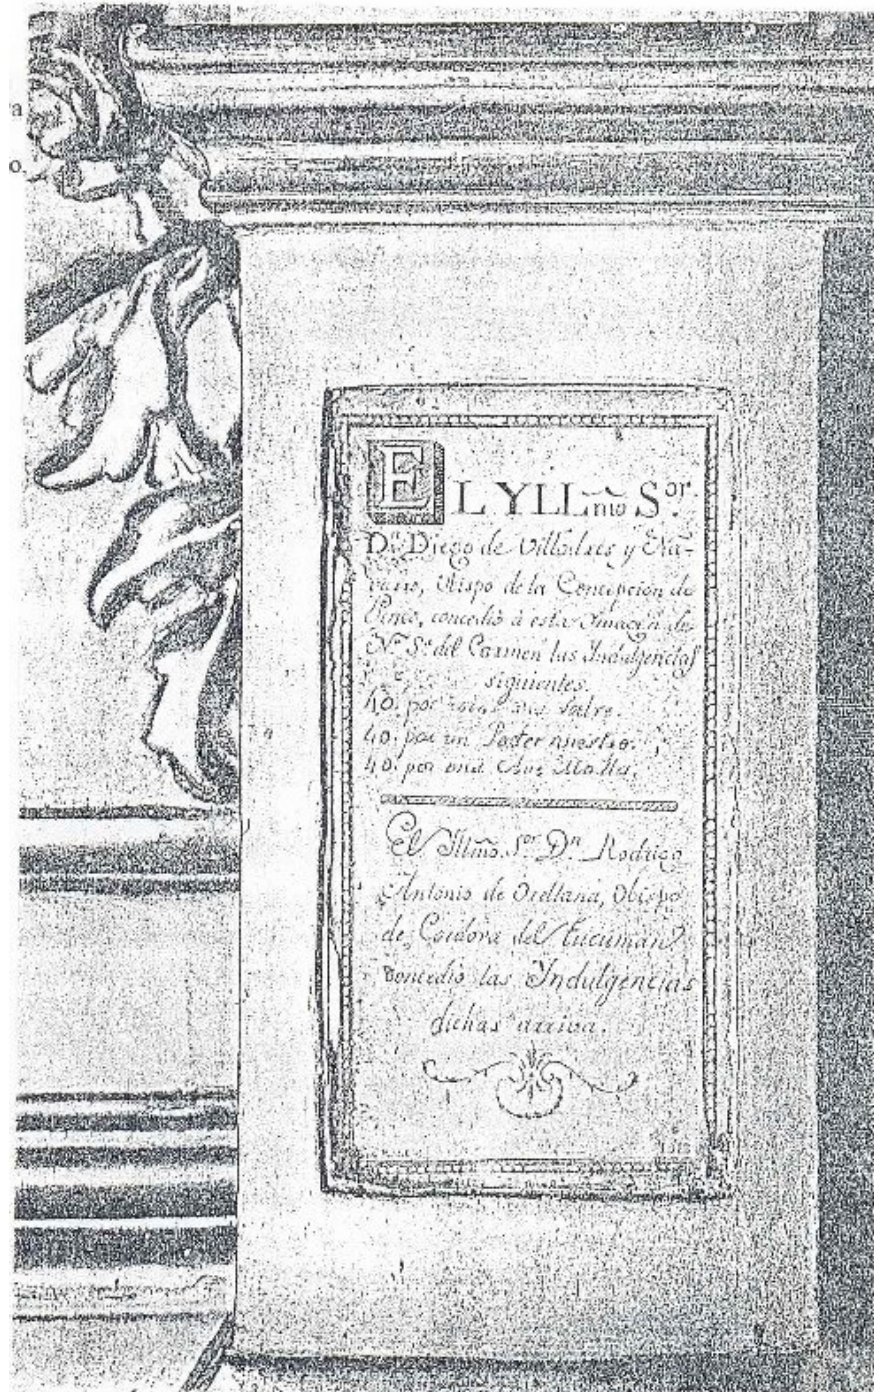 a
o.
EL YLLmo Sor.
Dn. Diego de Villodres y Na-
varro, Obispo de la Concepcion de
Penco, concedió á esta Imagen de
Na. Sa. del Carmen las Yndulgencias
siguientes.
40. por Salve.
40. por un Pater nuestro.
40. por una Ave Maria.
El Yllmo. Sor. Dn. Rodrigo
Antonio de Orellana, Obispo
de Cordova del Tucuman
concedió las Yndulgencias
dichas arriva.